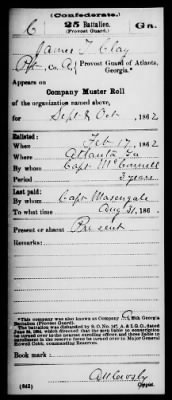 (Confederate.)
C 25 Battalion. Gn.
(Provost Guard.)
James T Clay
Pvt, Co. A, Provost Guard of Atlanta, Georgia.*
Appears on
Company Muster Roll
of the organization named above,
for Sept & Oct, 1862
Enlisted:
When Feb 17, 1862
Where Atlanta Ga
By whom Capt McConnell
Period 3 years
Last paid:
By whom Capt Masengale
To what time Aug 31, 186
Present or absent Present
Remarks:
*This company was also known as Company 25th Georgia
Battalion (Provost Guard).
Book mark:
(642)
Copyist.